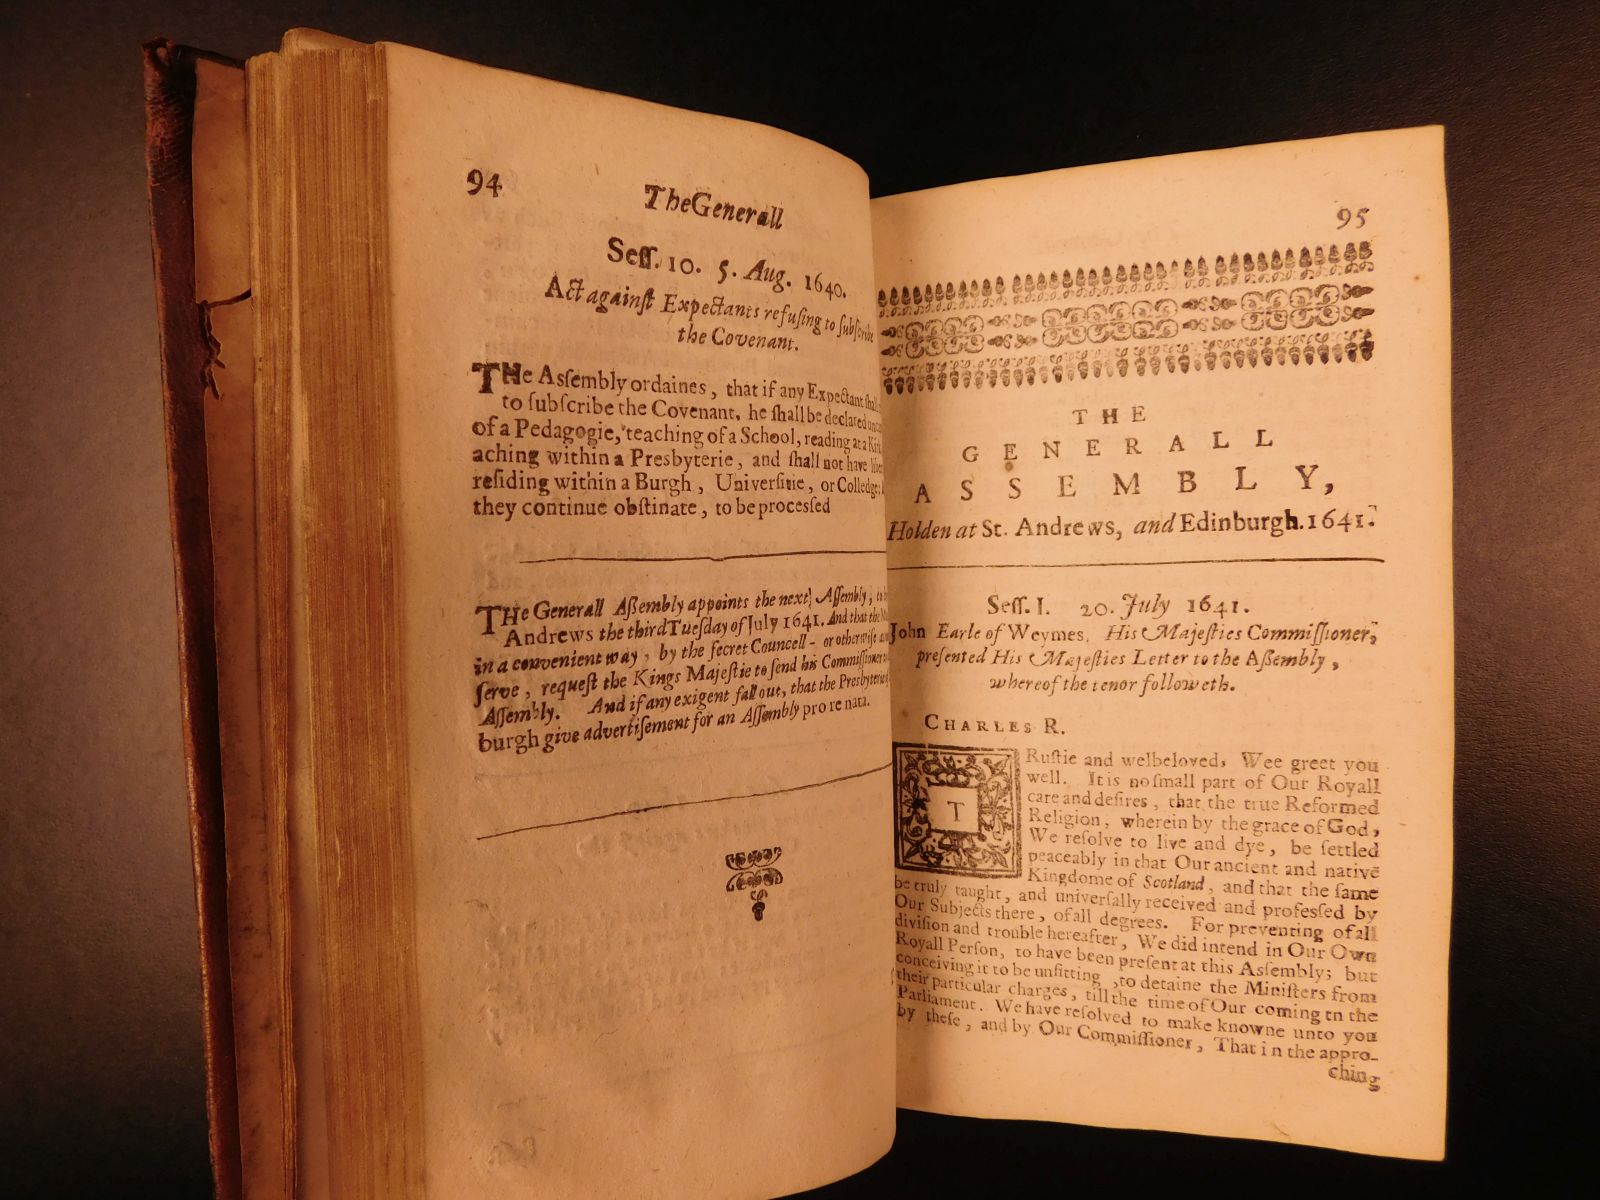 94
The Generall
Seſſ. 10. 5. Aug. 1640.
Act againſt Expectants refuſing to ſubſcribe
the Covenant.
THe Aſſembly ordaines, that if any Expectant ſhall
to ſubſcribe the Covenant, he ſhall be declared
of a Pedagogie, teaching of a School, reading at a
aching within a Presbyterie, and ſhall not have
reſiding within a Burgh, Univerſitie, or Colledge:
they continue obſtinate, to be proceſſed
THe Generall Aſſembly appoints the next Aſſembly, to
Andrews the third Tueſday of July 1641. And that the
in a convenient way, by the ſecret Councell - or otherwiſe
ſerve, requeſt the Kings Majeſtie to ſend his Commiſſioner
Aſſembly. And if any exigent fall out, that the Presbyterie
burgh give advertiſement for an Aſſembly pro re nata.
95
THE
GENERALL
ASSEMBLY,
Holden at St. Andrews, and Edinburgh. 1641.
Seſſ. I. 20. July 1641.
John Earle of Weymes, His Majeſties Commiſſioner,
preſented His Majeſties Letter to the Aſſembly,
whereof the tenor followeth.
CHARLES R.
TRuſtie and welbeloved, Wee greet you
well. It is no ſmall part of Our Royall
care and deſires, that the true Reformed
Religion, wherein by the grace of God,
We reſolve to live and dye, be ſettled
peaceably in that Our ancient and native
Kingdome of Scotland, and that the ſame
be truly taught, and univerſally received and profeſſed by
Our Subjects there, of all degrees. For preventing of all
diviſion and trouble hereafter, We did intend in Our Own
Royall Perſon, to have been preſent at this Aſſembly; but
conceiving it to be unfitting, to detaine the Miniſters from
their particular charges, till the time of Our coming tn the
Parliament. We have reſolved to make knowne unto you
by theſe, and by Our Commiſſioner, That in the appro-
ching